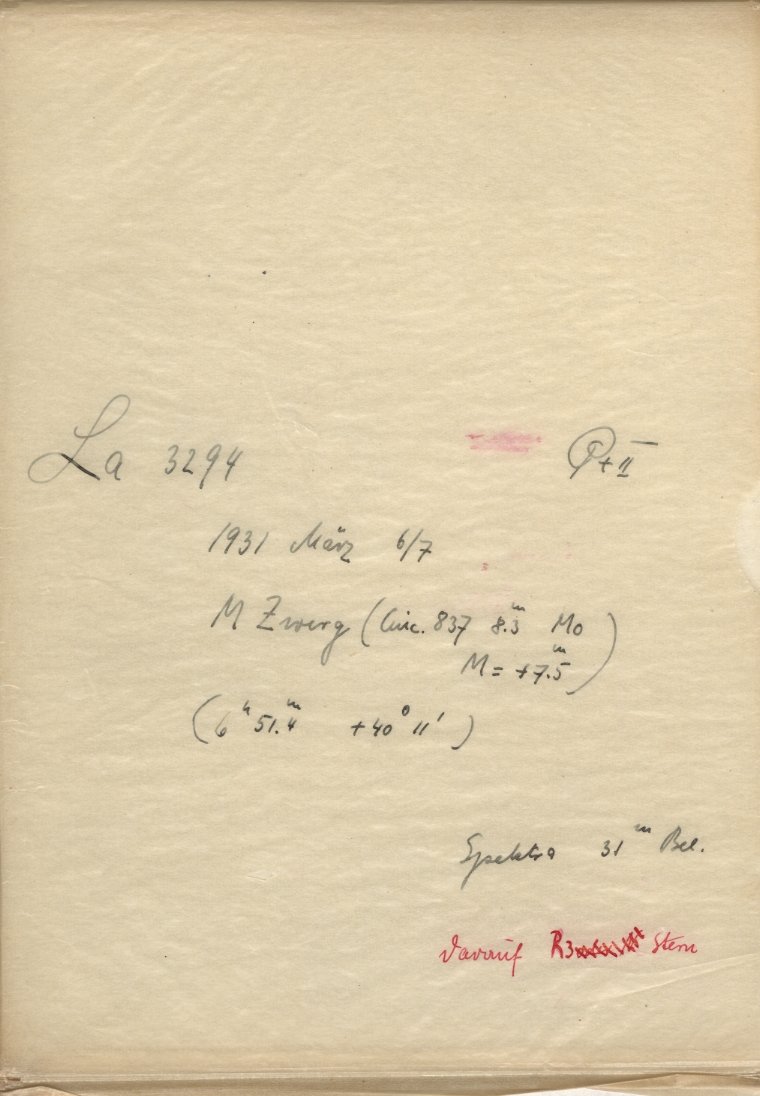 La 3294 P + II
1931 März 6/7
M Zwerg (Cinc. 837 8.3ᵐ M0
M = +7.5ᵐ)
(6ʰ 51.4ᵐ +40° 11')
Spektra 31ᵐ Bel.
darauf R3 Stern